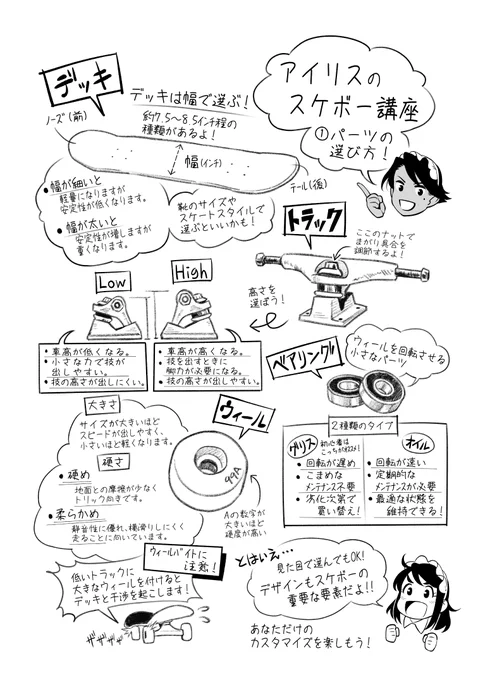 アイリスの
スケボー講座
①パーツの
選び方!
デッキ
デッキは幅で選ぶ!
約7.5〜8.5インチ程の
種類があるよ!
ノーズ(前)
幅(インチ)
テール(後)
• 幅が細いと
軽量になりますが
安定性が低くなります。
• 幅が太いと
安定性が増しますが
重くなります。
靴のサイズや
スケートスタイルで
選ぶといいかも!
トラック
ここのナットで
まがり具合を
調節するよ!
高さを
選ぼう!
Low
High
• 車高が低くなる。
• 小さな力で技が
出しやすい。
• 技の高さが出しにくい。
• 車高が高くなる。
• 技を出すときに
脚力が必要になる。
• 技の高さが出しやすい。
ベアリング
ウィールを回転させる
小さなパーツ
2種類のタイプ
グリス
初心者は
こっちがオススメ!
• 回転が遅め
• こまめな
メンテナンス不要
• 劣化次第で
買い替え!
オイル
• 回転が速い
• 定期的な
メンテナンスが必要
• 最適な状態を
維持できる!
ウィール
大きさ
サイズが大きいほど
スピードが出しやすく、
小さいほど軽くなります。
硬さ
• 硬め
地面との摩擦が少なく
トリック向きです。
• 柔らかめ
静音性に優れ、横滑りしにくく
走ることに向いています。
99A
Aの数字が
大きいほど
硬度が高い
ウィールバイトに
注意!
低いトラックに
大きなウィールを付けると
デッキと干渉を起こします!
ザザザザ
とはいえ…
見た目で選んでもOK!
デザインもスケボーの
重要な要素だよ!!
あなただけの
カスタマイズを楽しもう!